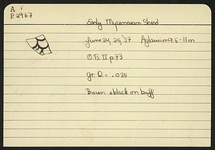 A
P 2967
Early Mycenaean Sherd
June 24, 25, '37
O.B. II p. 73
Gr. D. = .035
Brown & black on buff